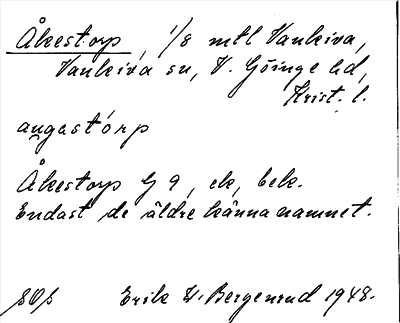 Åkestorp, 1/8 mtl Vankiva,
Vankiva sn, V. Göinge hd,
Krist. l.
aŋgastórp
Åkestorp G 9, ek, bek.
Endast de äldre känna namnet.
Erik W. Bergenrud 1948.